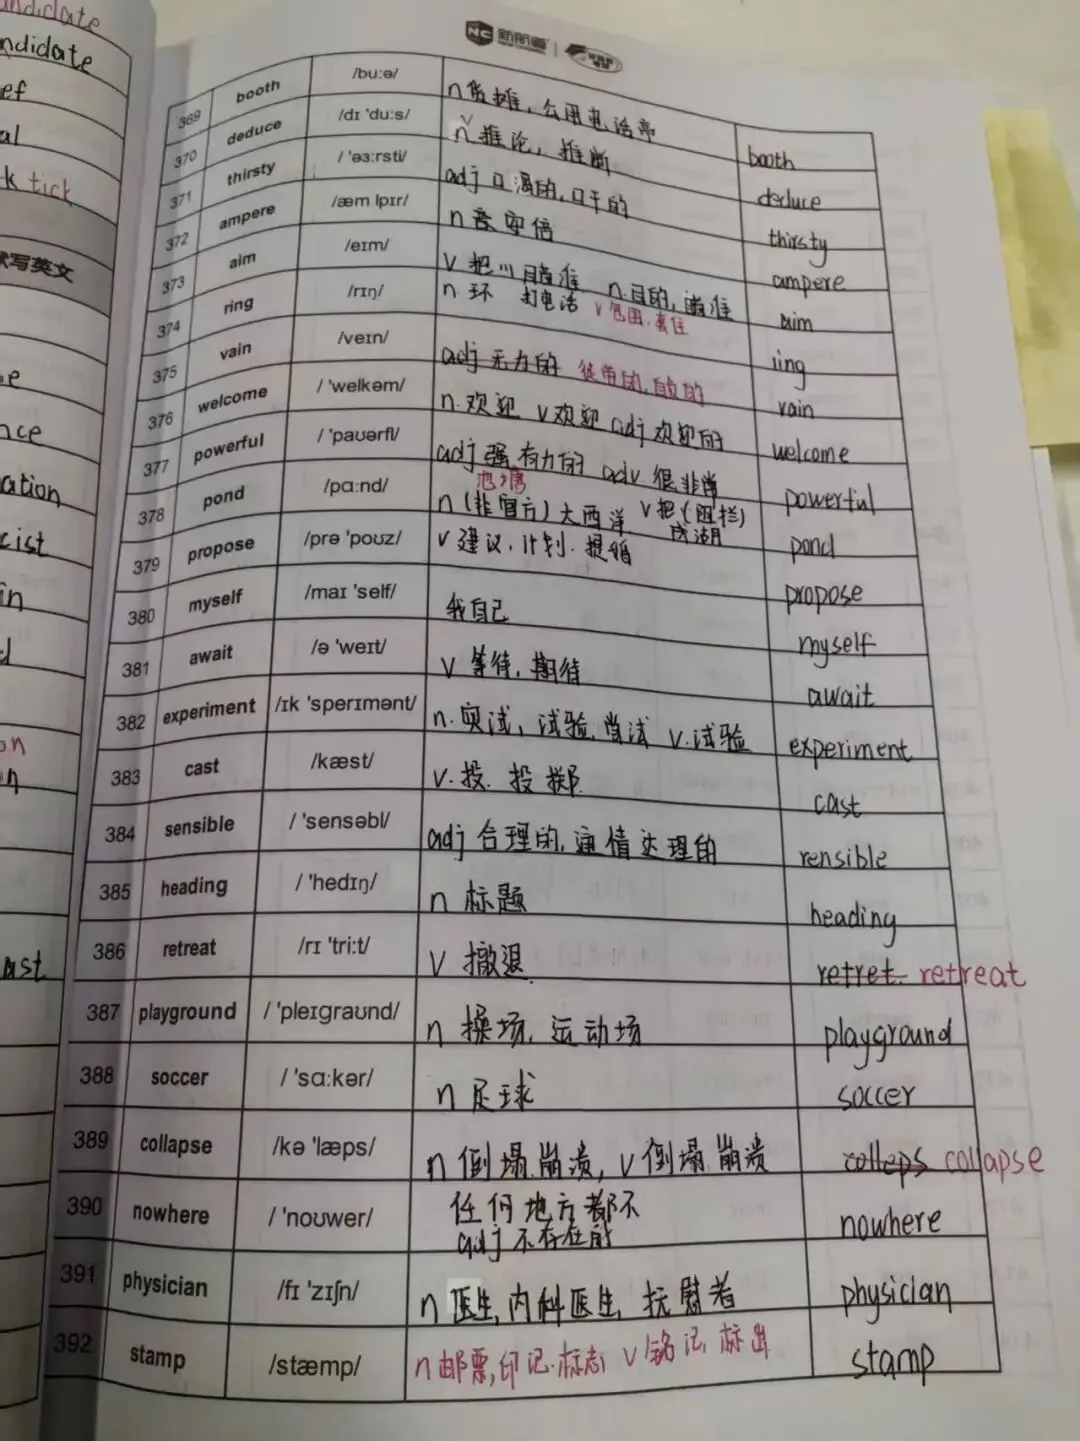 andidate
ndidate
ef
al
k tick
写英文
e
nce
ation
cist
in
d
on
n
ast
新航道
369 booth /buːə/ n 货摊, 公用电话亭 booth
370 deduce /dɪ 'duːs/ v 推论, 推断 deduce
371 thirsty / 'əɜːrsti/ adj 口渴的, 口干的 thirsty
372 ampere /æm lpɪr/ n 安倍 ampere
373 aim /eɪm/ v 把 瞄准 n.目的, 瞄准 aim
374 ring /rɪŋ/ n. 环 打电话 v 包围. ring
375 vain /veɪn/ adj 无力的 徒劳的, 自负的 vain
376 welcome / 'welkəm/ n. 欢迎 v 欢迎 adj 欢迎的 welcome
377 powerful / 'paʊərfl/ adj 强, 有力的 adv 很 非常 powerful
378 pond /pɑːnd/ 池塘 n (非官方) 大西洋 v 把 (阻拦) 成湖 pond
379 propose /prə 'poʊz/ v 建议, 计划. propose
380 myself /maɪ 'self/ 我自己 myself
381 await /ə 'weɪt/ v 等待, 期待 await
382 experiment /ɪk 'sperɪmənt/ n. 实试, 试验, 尝试 v.试验 experiment
383 cast /kæst/ v. 投. 投掷. cast
384 sensible / 'sensəbl/ adj 合理的, 通情达理的 rensible
385 heading / 'hedɪŋ/ n 标题 heading
386 retreat /rɪ 'triːt/ v 撤退. retret. retreat
387 playground / 'pleɪɡraʊnd/ n 操场, 运动场 playground
388 soccer / 'sɑːkər/ n 足球 soccer
389 collapse /kə 'læps/ n 倒塌, 崩溃, v 倒塌, 崩溃 colleps collapse
390 nowhere / 'noʊwer/ 任何地方都不 nowhere
adj 不存在的
391 physician /fɪ 'zɪʃn/ n 医生, 内科医生, 抚慰者 physician
392 stamp /stæmp/ n 邮票, 印记. 标志 v 铭记, 标出 stamp